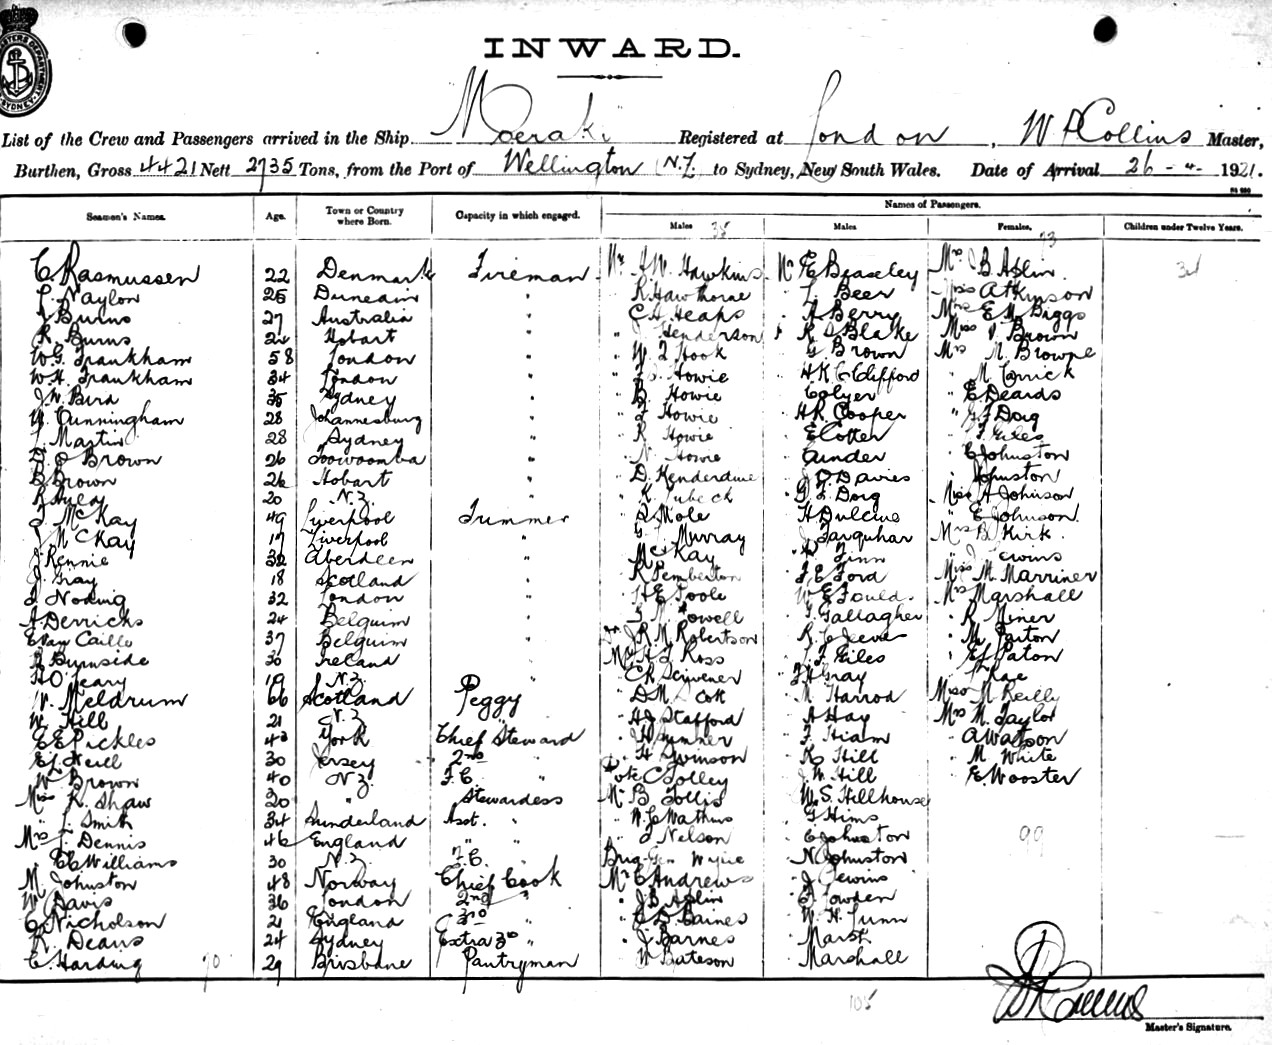 INWARD.
List of the Crew and Passengers arrived in the Ship "Moeraki" Registered at London, W P Collins Master,
Burthen, Gross 4421 Nett 2735 Tons, from the Port of Wellington (N.Z. to Sydney, New South Wales. Date of Arrival 26 - 4 - 1921.
Names of Passengers.
Seamen's Names. Age. Town or Country where Born. Capacity in which engaged. Males Males Females. Children under Twelve Years.
35 73 34
C Rasmussen 22 Denmark Fireman Mr H W Hawkins Mr E Beaseley Mrs J B Aplin
Naylon 25 Dunedin " R Hawthorne Beer Miss Atkinson
J Burns 27 Australia " C H Heaps A Berry Mrs E M Biggs
R. Burns 24 Hobart " " J Henderson " R S Blake Miss V Brown
W.G. Frankham 58 London " " W J Hook G Brown Mrs M. Browne
W.H. Frankham 34 London " " Howie H.K. C Clifford " M Carrick
J.W. Bird 35 Sydney " " B. Howie Colyer E Deards
W. Cunningham 28 Johannesburg " " Howie H.R. Cooper " G F Doig
Martin 28 Sydney " " R Howie E Cotter " F. Giles
D. J Brown 26 Toowoomba " " N Howie Cunder E Johnston
B Brown 26 Hobart " " D. Kenderdine J D Davies " Johnston
20 N.Z. " " K. Lubeck G. F. Doig Miss A Johnson
J McKay 49 Liverpool Trimmer Mole H Dulcius " E Johnson
J McKay 17 Liverpool " G Murray J Farquhar Mrs B. Kirk
J Rennie 32 Aberdeen " McKay Finn " J Lewins
J. Gray 18 Scotland " R Pemberton F. E Ford Miss M. Marriner
32 London " H E Poole W E Foulds Mrs Marshall
A Derricks 24 Belguim " Powell T. Gallagher " R Miner
E Van Caille 37 Belguim " Dr J R M Robertson R. G Jeeves " M. Paton
R Burnside 30 Ireland " Mr H. J Ross J F Giles " E J Paton
H O'Leary 19 N.Z. " C R Scrivener F H Gray " Rae
V. Meldrum 66 Scotland Peggy " D M. Scott " M Harrod Miss M Reilly
W. Hill 21 N.Z. " H J Stafford A Hay Mrs M. Taylor
E E Pickles 43 York Chief Steward " H Sumner " F Hiam " A Watson
E J Neill 30 Jersey 2nd " " H Swinson R Hill " M White
W Brown 40 N.Z. F.C. " C Tolley J. W. Hill " E. Wooster
Miss K. Shaw 30 " Stewardess Mr B Tollis W. S. Hillhouse
" Smith 34 Sunderland Asst. " " W. G Watkins G Hims
Mrs J. Dennis 46 England " " " J Nelson E Johnston 99
E C Williams 30 N.Z. F.C. " Brig-Gen Wylie N Johnston
M. Johnston 48 Norway Chief Cook Mr C Andrews J Lewins
W Davis 36 London 2nd " " J B Aplin F. Lowden
C Nicholson 21 England 3rd " " E D Baines W. H. Lunn
R. Deans 24 Sydney Extra 3rd " " J Barnes Marsh
C. Harding 29 Brisbane Pantryman " W Bateson Marshall
70 105
Master's Signature.